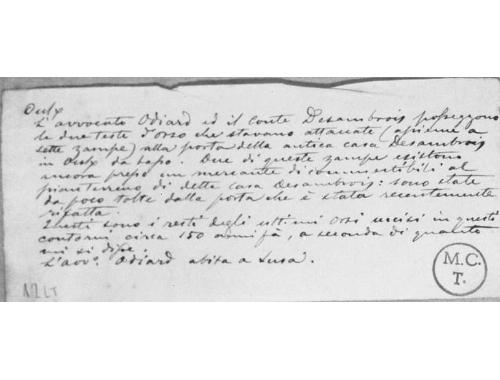 Oulx
L'avvocato Odiard ed il Conte Desambrois posseggono
le due teste d'orso che stavano attaccate (assieme a
sette zampe) alla porta della antica casa Desambrois
in Oulx da capo. Due di queste zampe esistono
ancora presso un mercante di commestibili al
pianterreno di detta casa Desambrois: sono state
da poco tolte dalla porta che è stata recentemente
rifatta.
Questi sono i resti degli ultimi orsi uccisi in questi
contorni circa 150 anni fà, a seconda di quanto
mi si disse.
L'avv. Odiard abita a Susa.
M.C.
T.